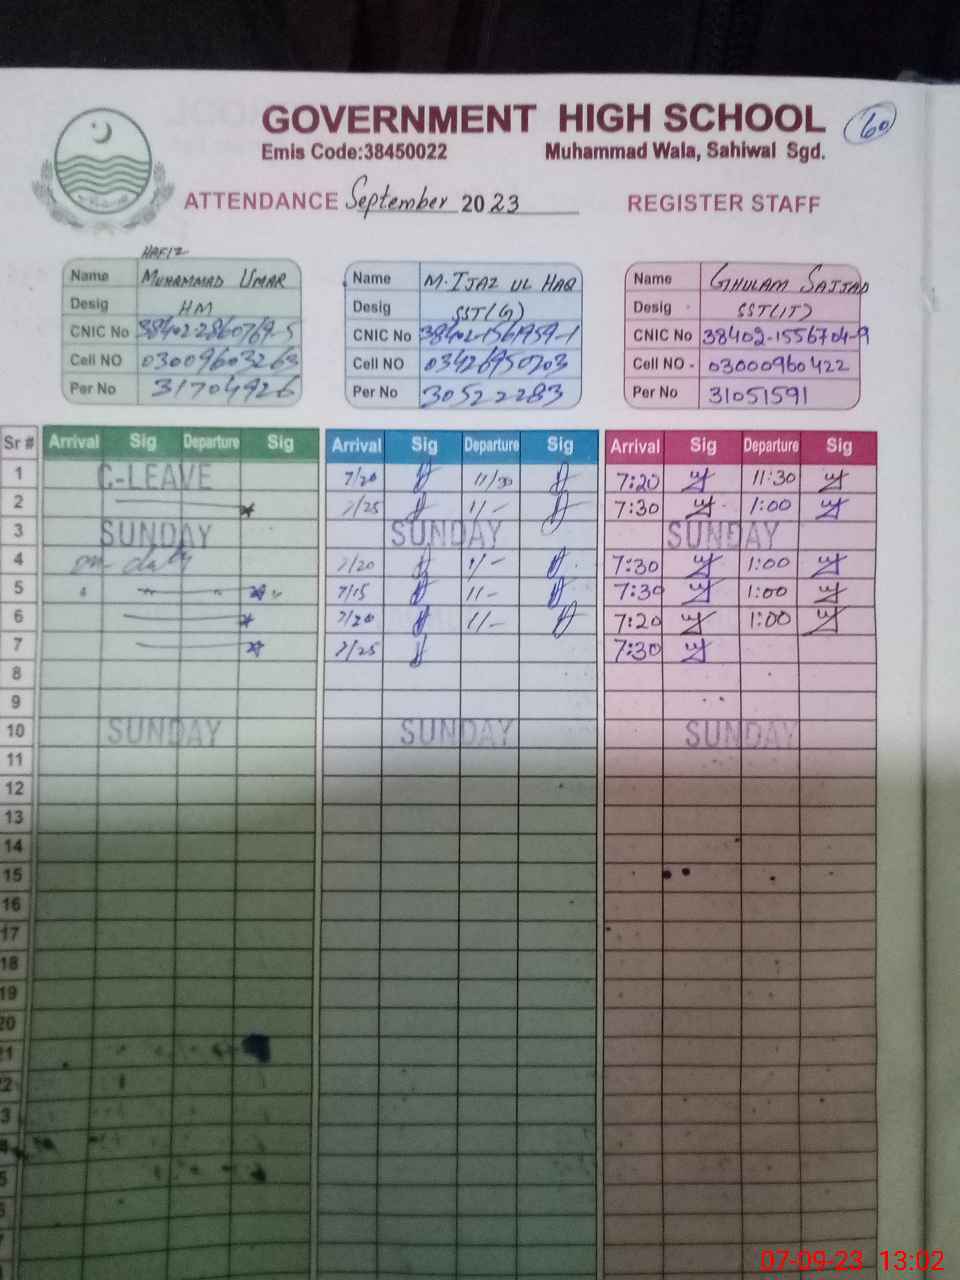 GOVERNMENT HIGH SCHOOL
60
Emis Code:38450022 Muhammad Wala, Sahiwal Sgd.
ATTENDANCE September 2023 REGISTER STAFF
HAFIZ
Name MUHAMMAD UMAR
Desig HM
CNIC No 38402-2860769-5
Cell NO 03009603263
Per No 31704926
Name M. IJAZ UL HAQ
Desig SST(G)
CNIC No 38402-1561959-1
Cell NO 03426950203
Per No 30522283
Name GHULAM SAJJAD
Desig SST(IT)
CNIC No 38402-1556704-9
Cell NO 03000960422
Per No 31051591
Sr # Arrival Sig Departure Sig Arrival Sig Departure Sig Arrival Sig Departure Sig
1 C-LEAVE 7/20 11/30 7:20 11:30
2 7/25 1/- 7:30 1:00
3 SUNDAY SUNDAY SUNDAY
4 on duty 7/20 1/- 7:30 1:00
5 7/15 1/- 7:30 1:00
6 7/20 1/- 7:20 1:00
7 7/25 7:30
8
9
10 SUNDAY SUNDAY SUNDAY
11
12
13
14
15
16
17
18
19
20
21
22
3
4
5
07-09-23 13:02